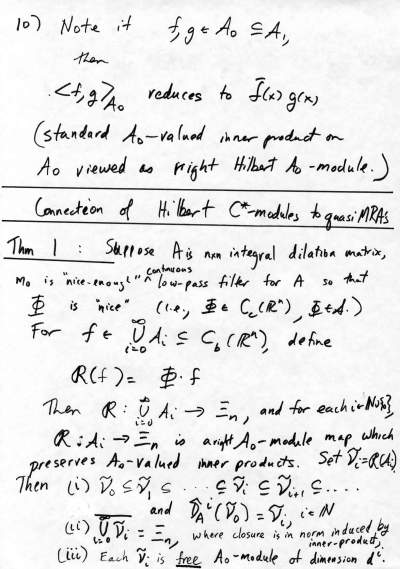 10) Note if f, g ∈ A₀ ⊆ A₁,
then
<f,g>_{A₀} reduces to f̄(x) g(x)
(standard A₀-valued inner product on
A₀ viewed as right Hilbert A₀-module.)
Connection of Hilbert C*-modules to quasi MRAs
Thm 1 : Suppose A is n×n integral dilation matrix,
m₀ is "nice-enough" continuous low-pass filter for A so that
Φ is "nice" (i.e., Φ ∈ C_c(ℝⁿ), Φ ∈ 𝒜.)
For f ∈ ⋃_{i=0}^∞ A_i ⊆ C_b(ℝⁿ), define
R(f) = Φ · f
Then R : ⋃_{i=0}^∞ A_i → Ξ_n, and for each i ∈ ℕ∪{0},
R : A_i → Ξ_n is a right A₀-module map which
preserves A₀-valued inner products. Set Ṽ_i = R(A_i).
Then (i) Ṽ₀ ⊆ Ṽ₁ ⊆ ..... ⊆ Ṽ_i ⊆ Ṽ_{i+1} ⊆ ....
and D̂_A^i (Ṽ₀) = Ṽ_i, i ∈ ℕ
(ii) \overline{⋃_{i=0}^∞ Ṽ_i} = Ξ_n, where closure is in norm induced by inner-product,
(iii) Each Ṽ_i is free A₀-module of dimension dⁱ.